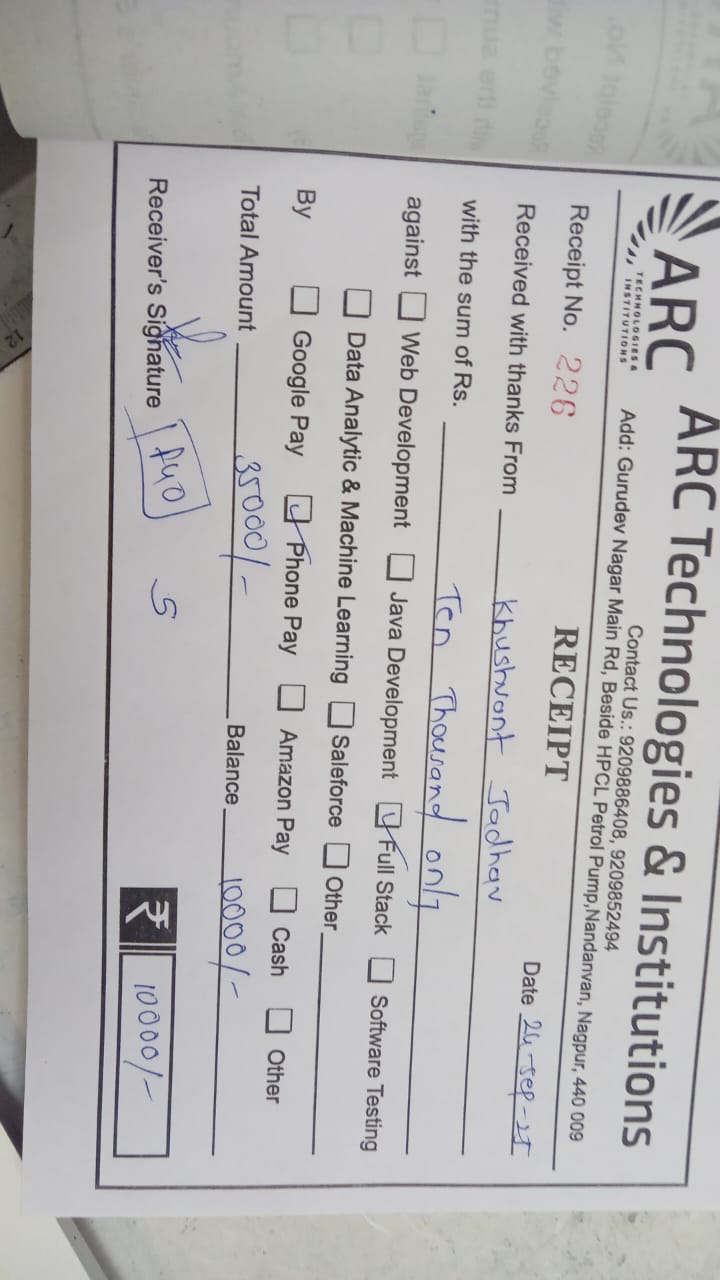 ARC TECHNOLOGIES & INSTITUTIONS
ARC Technologies & Institutions
Contact Us.: 9209886408, 9209852494
Add: Gurudev Nagar Main Rd, Beside HPCL Petrol Pump,Nandanvan, Nagpur, 440 009
Receipt No. 226 RECEIPT
Date 24-Sep-25
Received with thanks From Khushvant Jadhav
with the sum of Rs. Ten Thousand only
against Web Development Java Development Full Stack Software Testing
Data Analytic & Machine Learning Saleforce Other
By Google Pay Phone Pay Amazon Pay Cash Other
Total Amount 35000/- Balance 10000/-
Receiver's Signature ₹ 10000/-